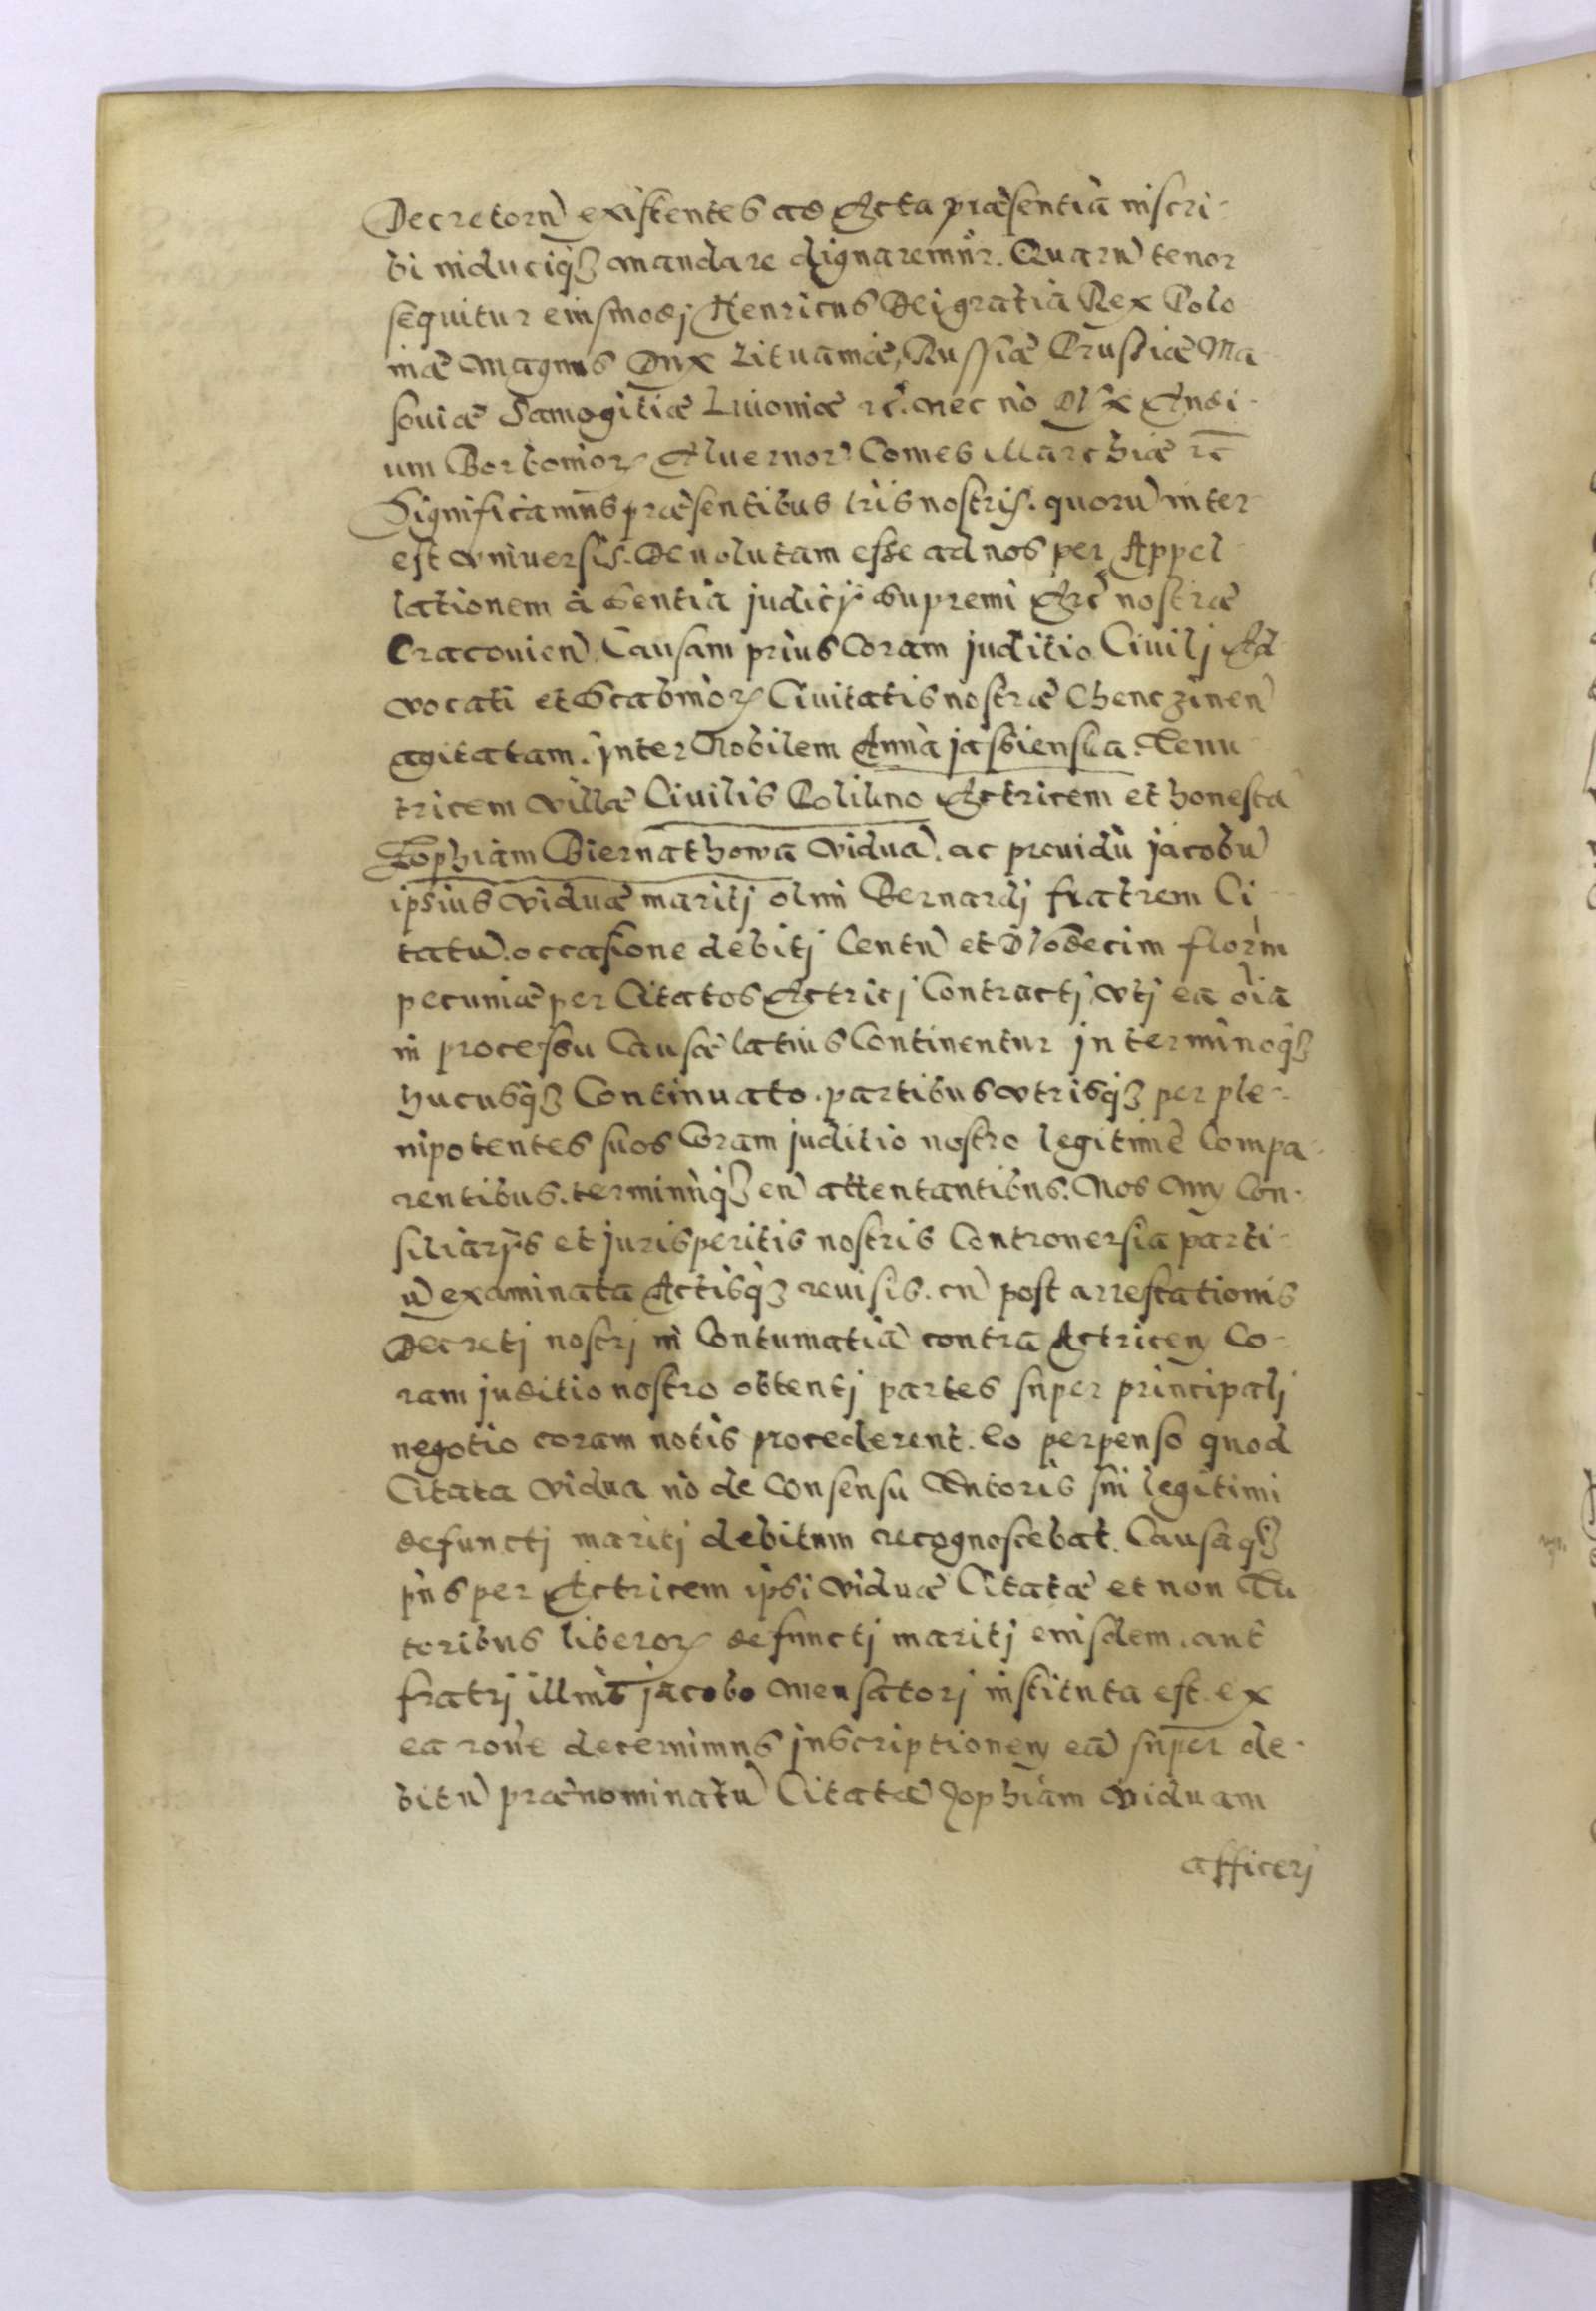 Decretorũ existentes ad Acta præsentia inscri-
bi induciqȝ mandare dignaremur. Quarũ tenor
sequitur eiusmodj Henricus Dei gratia Rex Polo-
niæ Magnus Dux Lituaniæ, Russiæ Prussiæ Ma-
souiæ Samogitiæ Liuoniæ ꝛc̃. nec nõ Dux Andi-
um Borbonioꝝ Aluernor̃ Comes Marchiæ ꝛc̃
Significamus præsentibus lr̃is nostris. quorũ inter-
est vniuersis. Deuolutam esse ad nos per Appel-
lationem à Sentĩa judicij supremi Arc̃ nostræ
Cracouien̄ Causam prius Coram juditio Ciuilj Ad-
vocati et Scabinoꝝ Ciuitatis nostræ Chenczinen̄
agitatam. Inter Nobilem Annã jasbienska. Tenu-
tricem villæ Ciuilis Polikno Actricem et honestã
Zophiam Biernathowa viduã. ac prouidũ jacobũ
ipsius viduæ maritj olim Bernardj fratrem Ci-
tatũ. occasione debitj Centũ et Duodecim flor̃m
pecuniæ per Citatos Actricj Contractj, vtj ea oĩa
in processu Causæ latius Continentur jn terminoqȝ
hucusqȝ Continuato. partibus vtrisqȝ per ple-
nipotentes suos Coram juditio nostro legitimè Compa-
rentibus. terminũqȝ eũ attentantibus. Nos cum Con-
siliarijs et jurisperitis nostris Controuersia parti-
ũ examinata Actisqȝ reuisis. cũ post arrestationis
Decretj nostrj in Contumatiã contra Actricem Co-
ram juditio nostro obtentj partes super principalj
negotio coram nobis procederent. Eo perpenso quod
Citata vidua nõ de Consensu Tutoris sui legitimi
defunctj maritj debitum recognoscebat. Causaqȝ
p̃ns per Actricem ipsi viduæ Citatæ et non Tu-
toribus liberoꝝ defunctj maritj eiusdem. aut
fratrj illius jacobo Mensatorj instituta est. ex
ea rõne decernimus jnscriptionem eã super de-
bitũ prænominatũ Citatã Zophiam viduam
afficerj